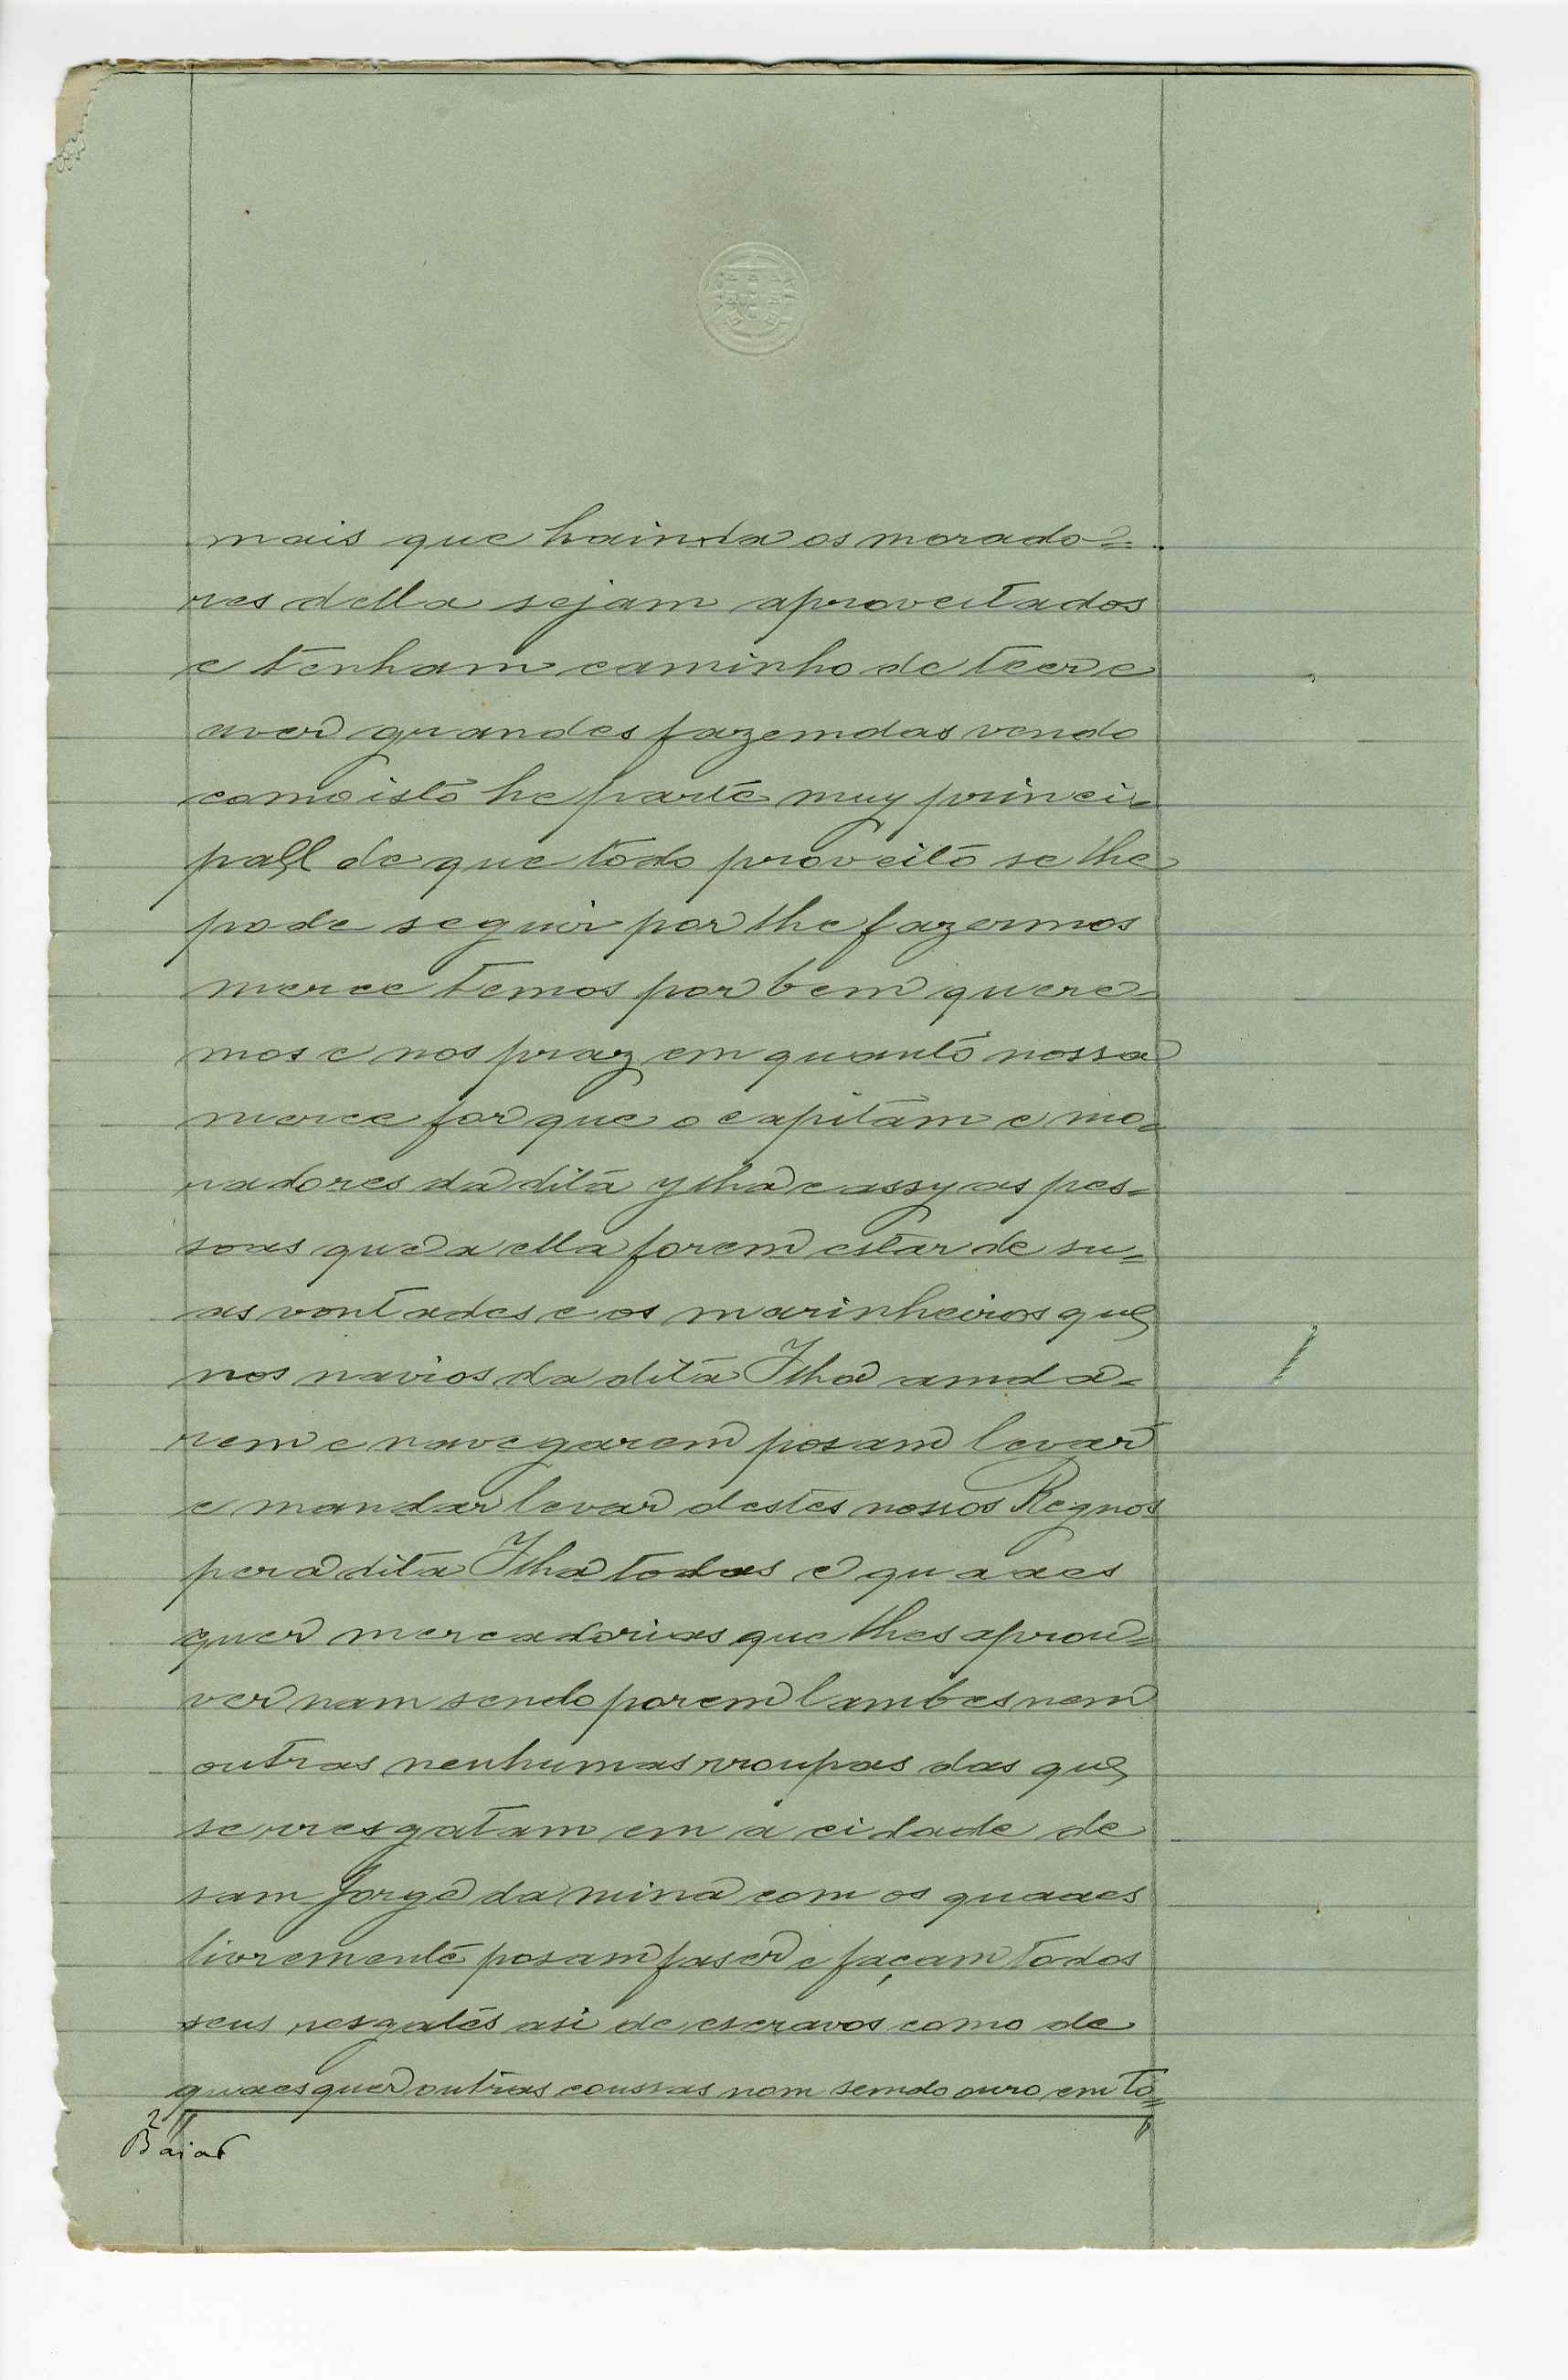 mais que hainda os morado=
res della sejam aproveitados
e tenham caminho de teer e
aver grandes fazemdas vendo
como isto he parte muy princi=
pall de que todo proveito se lhe
pode seguir por lhe fazermos
merce temos por bem quere=
mos e nos praz em quanto nossa
merce for que o capitam e mo=
radores da dita ylha e assy as pes=
soas que a ella forem estar de su=
as vontades e os marinheiros que
nos navios da dita Ilha amda=
rem e navegarem posam levar
e mandar levar destes nossos Regnos
pera dita Ilha todas e quaaes
quer mercadorias que lhes aprou=
ver nam sendo porem lambes nem
outras nenhumas rroupas das que
se rresgatam em a cidade de
sam Jorge da mina com os quaaes
livremente posam faser e façam todos
seus resgates asi de escravos como de
quaesquer outras coussas nom semdo ouro em to=
2